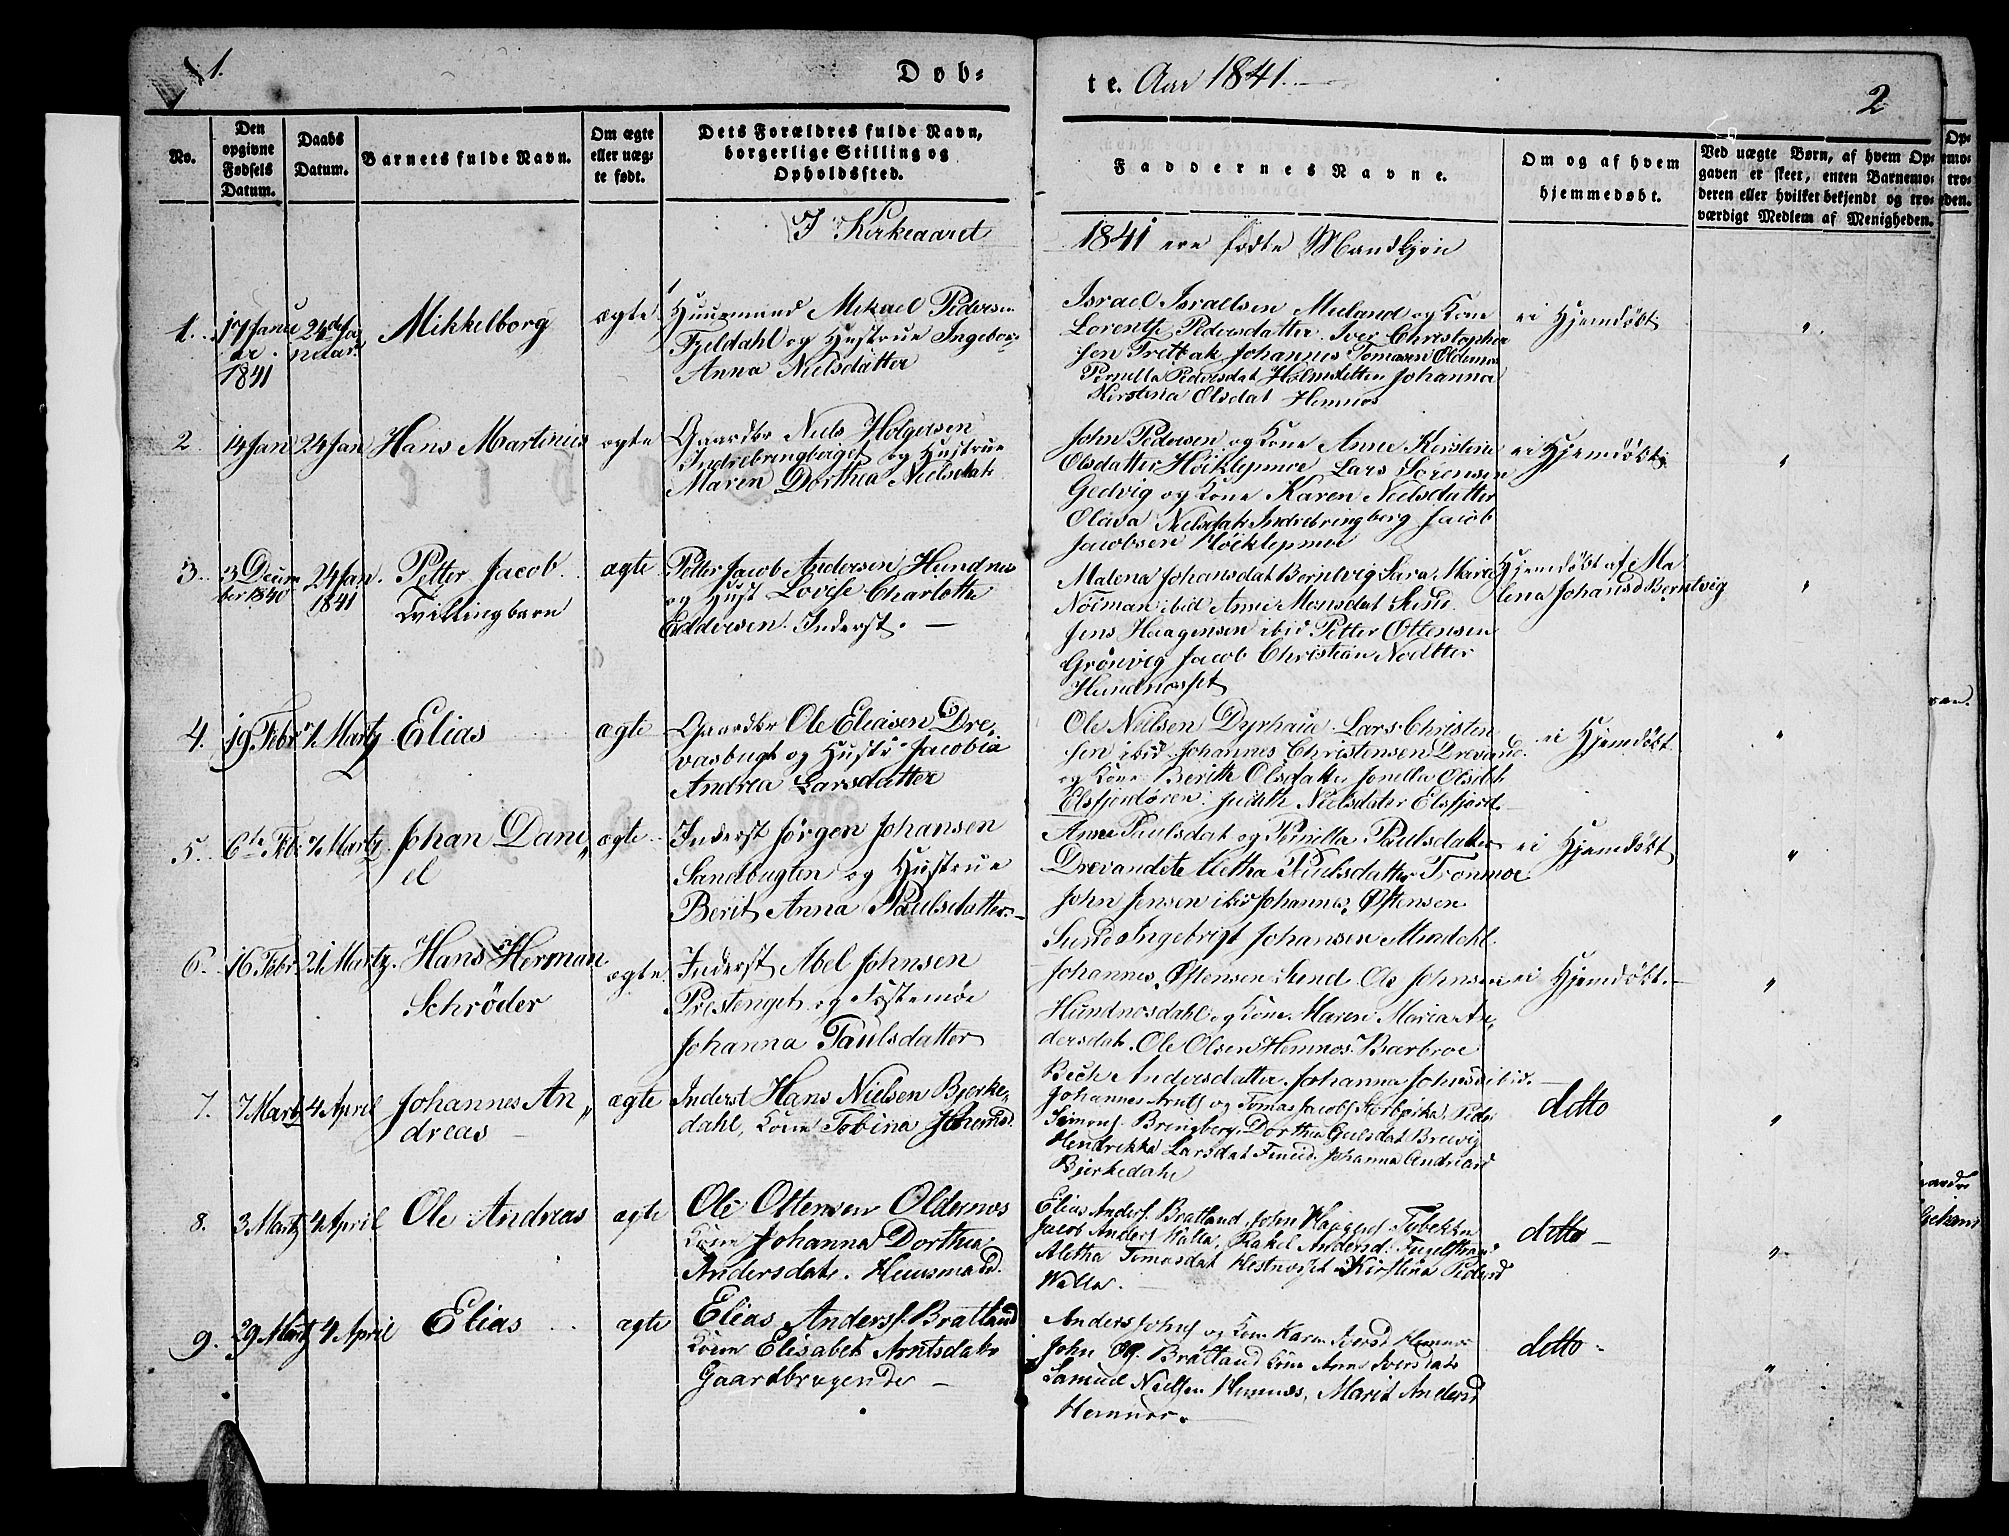 1.
Døb-
te. Aar 1841.
2
No.
Den
opgivne
Fødsels
Datum.
Daabs
Datum.
Barnets fulde Navn.
Om ægte
eller uæg-
te født.
Dets Forældres fulde Navn,
borgerlige Stilling og
Opholdssted.
Faddernes Navne.
Om og af hvem
hjemmedøbt.
Ved uægte Børn, af hvem Op-
gaven er skeet, enten Barnemo-
deren eller hvilket bekjendt og tro-
værdigt Medlem af Menigheden.
I Kirkeaaret
1841 ere fødte Mandkjøn
1.
17 Janu
ar
1841
24de Ja
nuar
Mikkelborg
ægte
Huusmand Mikael Pedersen
Fjeldahl og Hustrue Ingebor
Anna Nielsdatter
Israel Israelsen Meland og Kone
Lorentse Pedersdatter Iver Christopher
sen Tretbak Johannes Tomasen Oldernes
Pernella Pedersdat Holmsletten Johanna
Kirstina Olsdat Hemnes
ei Hjemdøbt
2.
14 Jan
24 Jan
Hans Martinius
ægte
Gaardbr Niels Holgersen
Indrebringberget og Hustrue
Maren Dorthea Nielsdatr
John Pedersen og Kone Anne Kirstine
Olsdatter Høiklepmoe Lars Sørensen
Gedvig og Kone Karen Nielsdatter
Olava Nielsdatr Indrebringberg Jacob
Jacobsen Høiklepmoe
ei Hjemdøbt
3.
3 Decem
ber 1840
24 Jan.
1841
Petter Jacob
Tvillingbarn
ægte
Petter Jacob Andersen Hundnes
og Hust Lovise Charlotte
Eddersen. Inderst. —
Malena Johansdat Berntvig Sara Marie
Nöiman ibid Anne Monsdat Sund
Jens Haagensen ibid Petter Ottensen
Grönvig Jacob Christian Nodtter
Hundnesset
Hjemdøbt af Ma
lena Johansd Berntvig
4.
19. Febr
7 Martz
Elias
ægte
Gaardbr Ole Eliasen Dre-
vasbugt og Hustr Jacobia
Andrea Larsdatter
Ole Nielsen Dyrhaue Lars Christen
sen ibid Johannes Christensen Drevand
og Kone Berith Olsdatter Olsdat
Elsfjordören. Judith Nielsdater Elsfjord.
ei Hjemdøbt
5.
6te Feb.
7 Martz
Johan Dani
el
ægte
Inderst Jørgen Johansen
Sandbugten og Hustrue
Berit Anna Paulsdatter
Anne Paulsdat og Pernella Paulsdatter
Drevandet Aletha Paulsdatter Tronmoe
John Jensen ibid Johannes Østensen
Sund Ingebrigt Johansen
ei Hjemdøbt
6.
16 Febr
21 Martz.
Hans Herman
Schrøder
ægte
Inderst Abel Johnsen
Prestenget og Fæstemøe
Johanna Paulsdatter
Johannes Østensen Sund Ole Johnsen
Hundnesdahl og Kone Maren Maria An-
dersdat. Ole Olsen Hemnes Barbroe
Bech Andersdatter Johanna Johnsd ibid.
ei Hjemdøbt
7.
7 Martz
4 April
Johannes An
dreas —
ægte
Inderst Hans Nielsen Bjerke-
dahl, Kone Tobina
Johannes og Tomas Jacobs Storbjerka Peder
Simons. Bringberg, Dorthea Brevig
Hendrikka Larsdat Johanna Andreasd
Bjerkedahl
detto
8.
3 Martz
4 April
Ole Andreas
ægte
Ole Ottensen Oldernes
Kone Johanna Dorthea
Andersdatr. Huusmand.
Elias Anders. Bratland, John
Jacob Anders Valla, Rakel Andersd.
Aletha Tomasdat Hestneset Kirstina Pedersd
Valla.
detto —
9.
29 Martz
4 April
Elias
ægte
Elias Anders. Bratland
Kone Elisabet Arntsdatr
Gaardbrugende —
Anders Johns og Kone Karen Iversd Hemnes
John Bratland Kone Anne Iversdatr
Samuel Nielsen Hemnes, Marit Andersd
Hemnes. —
detto